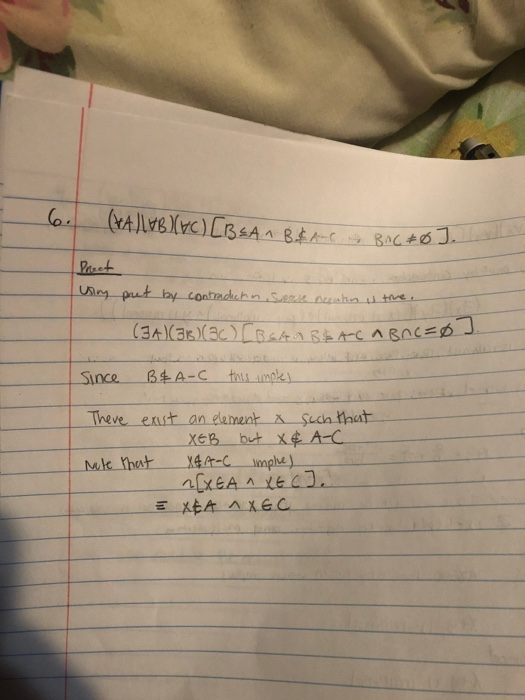 6. (∀A)(∀B)(∀C)[B⊆A ∧ B⊈A-C → B∩C≠∅].
Proof
Using proof by contradiction, suppose negation is true.
(∃A)(∃B)(∃C)[B⊆A ∧ B⊈A-C ∧ B∩C=∅]
Since B⊈A-C this implies
There exist an element x such that
x∈B but x∉A-C
Note that x∉A-C implies
~[x∈A ∧ x∈C].
≡ x∉A ∧ x∈C